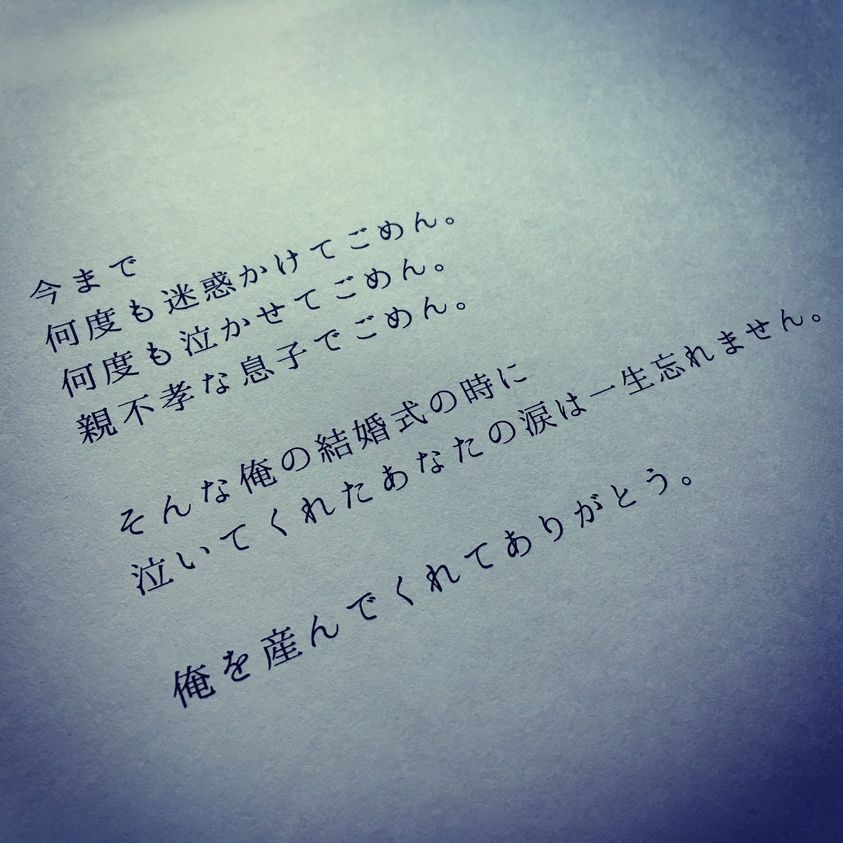 今まで
何度も迷惑かけてごめん。
何度も泣かせてごめん。
親不孝な息子でごめん。
そんな俺の結婚式の時に
泣いてくれたあなたの涙は一生忘れません。
俺を産んでくれてありがとう。